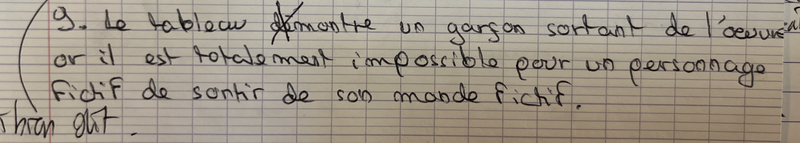 9. Le tableau montre un garçon sortant de l'oeuvre
or il est totalement impossible pour un personnage
fictif de sortir de son monde fictif.